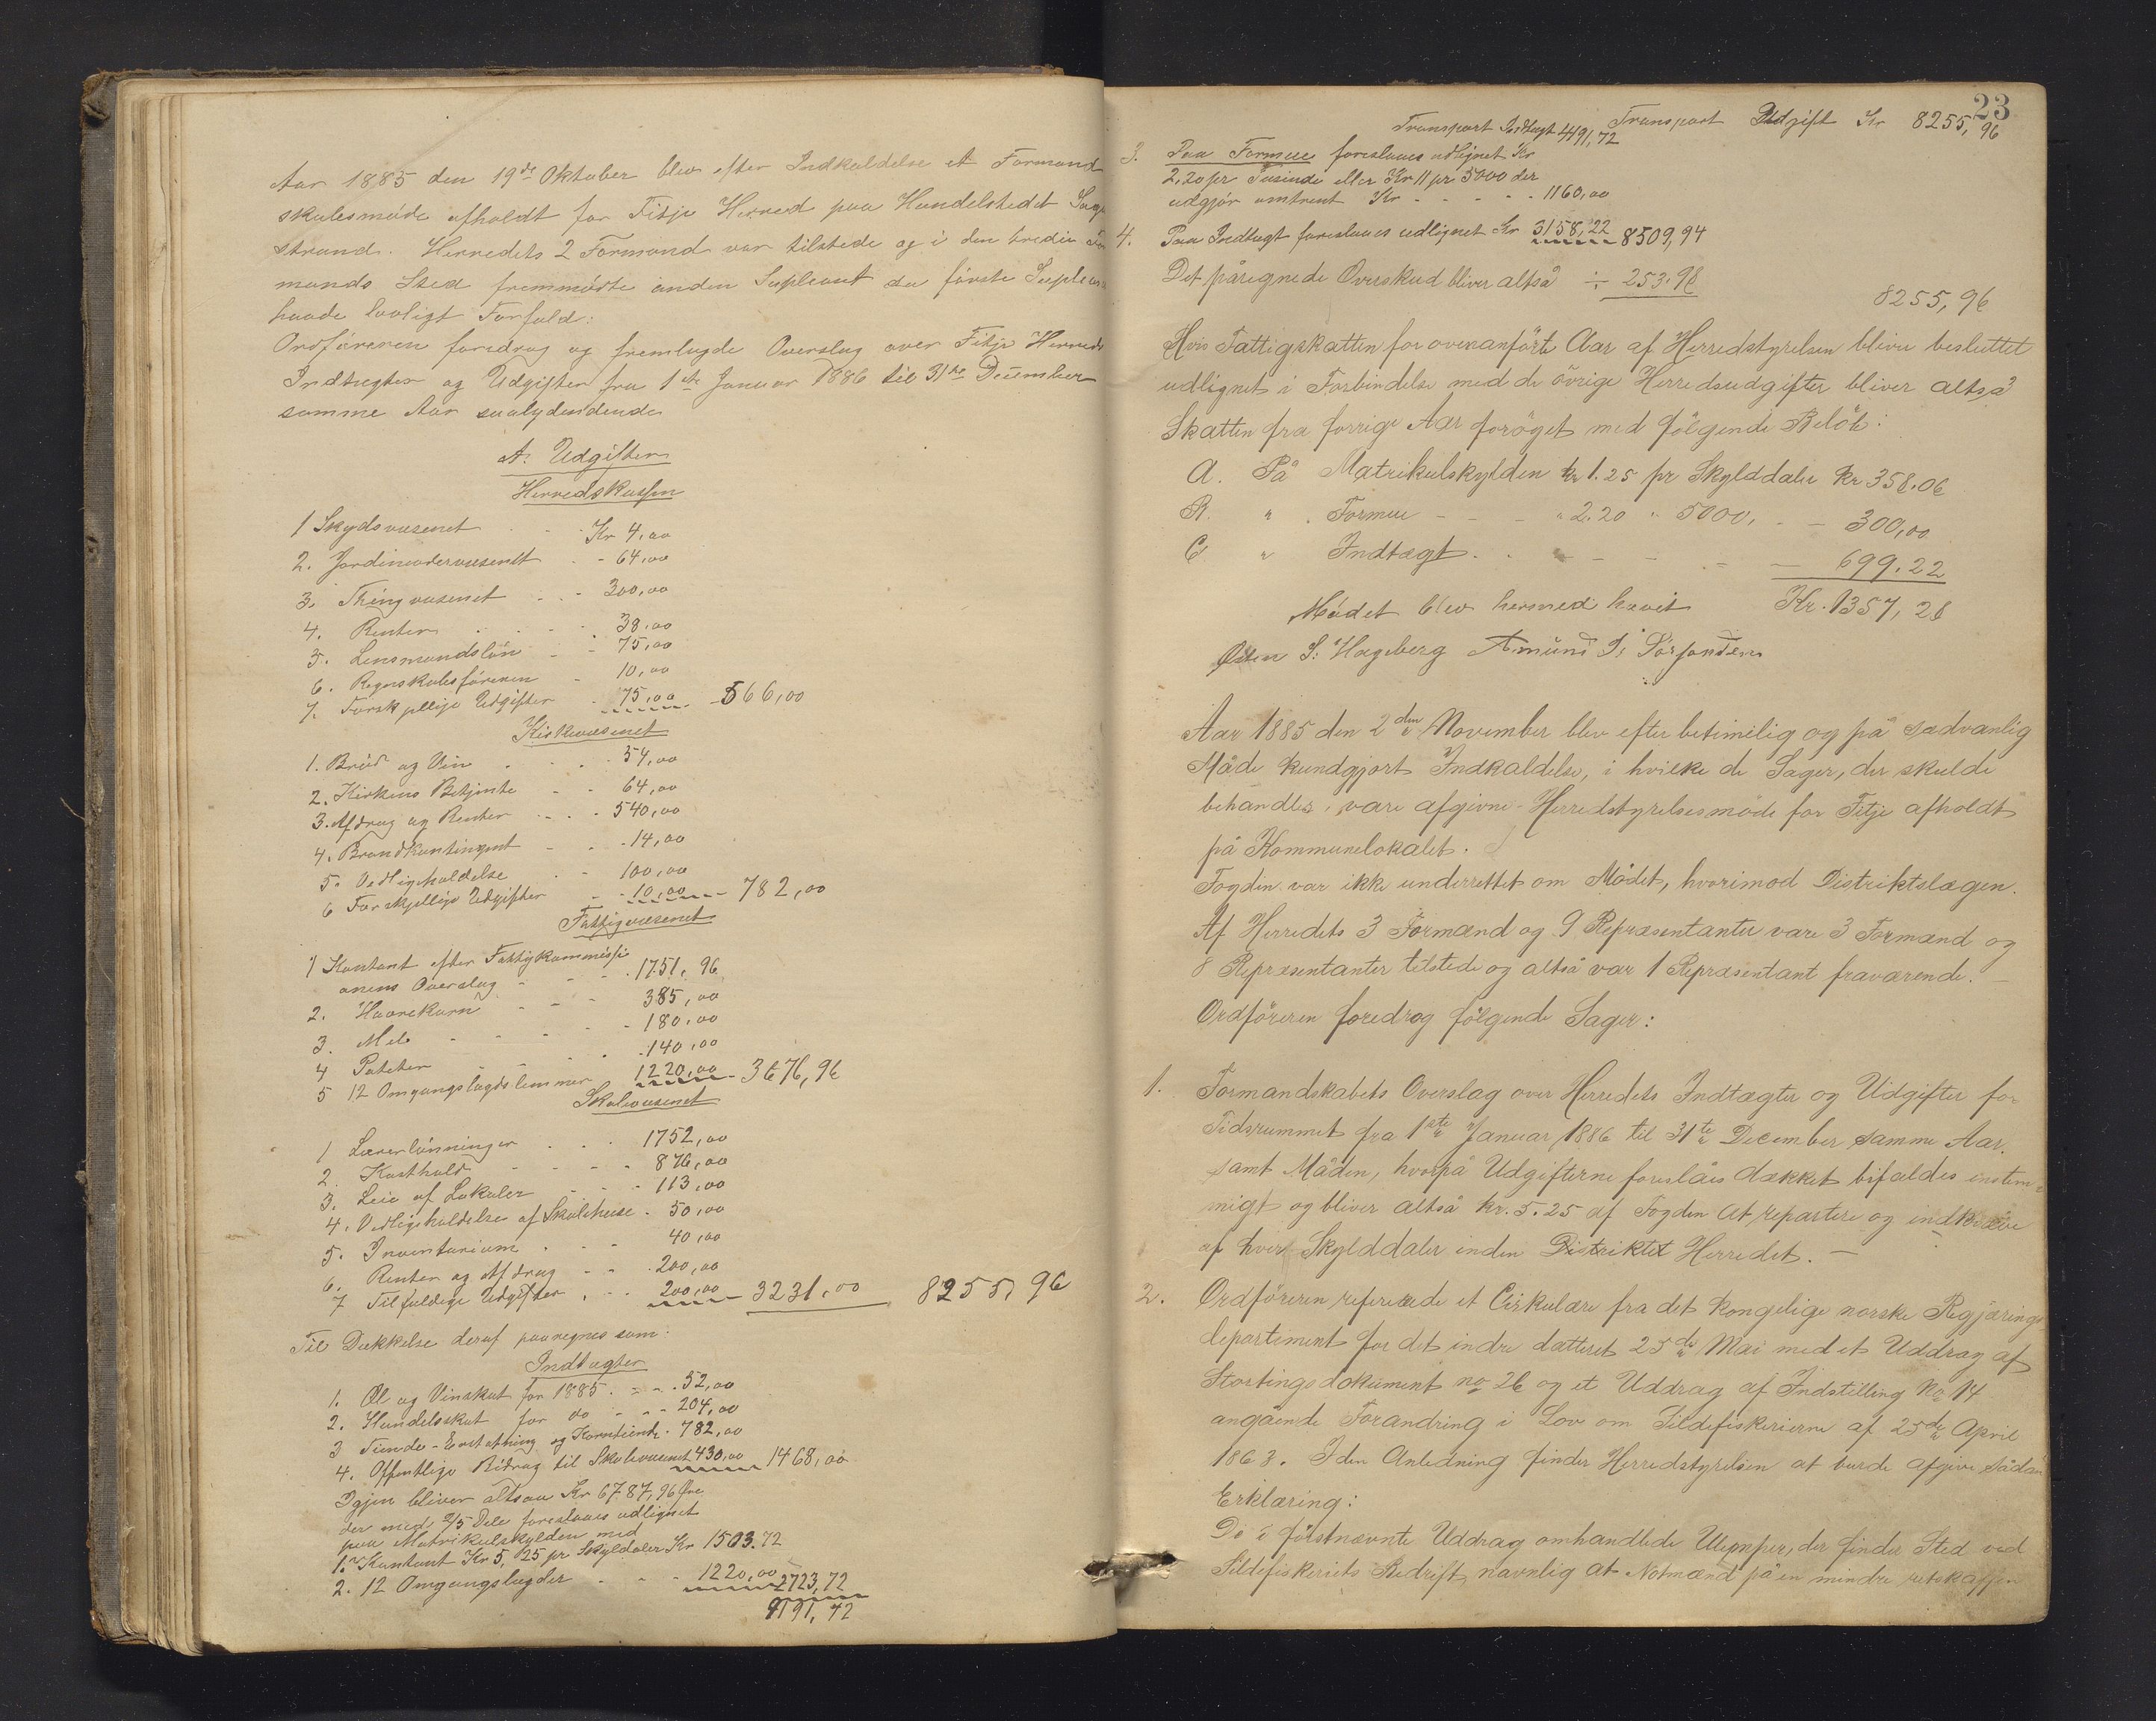 Aar 1885 den 19de Oktober blev efter Indkaldelse et Formand
skabsmøde afholdt for Fitje Herred paa Handelstedet Sag
strand. Herredets 2 Formænd var tilstede og i den tredie For
mands Sted fremmødte anden Supleant da første Suplean
havde lovligt Forfald:
Ordføreren foredrog og fremlagde Overslag over Fitje Herreds
Indtægter og Udgifter fra 1ste Januar 1886 til 31te December
samme Aar saalydendende
A. Udgifter
Herredskassen
1 Skydsvæsenet - - Kr 4,00
2. Jordmodervæsenet - - 64,00
3. Thingvæsenet - - 300,00
4. Renter - - 38,00
5. Lensmandsløn - - 75,00
6. Regnskabsføreren - 10,00
7. Forskjellige Udgifter - 75,00 - 566,00
Kirkevæsenet
1. Brød og Vin - - 54,00
2. Kirkens Betjente - - 64,00
3. Afdrag og Renter - - 540,00
4. Brandkontingent - - 14,00
5. Vedligeholdelse - - 100,00
6 Forskjellige Udgifter - - 10,00 - 782,00
Fattigvæsenet
1 Kontant efter Fattigkommissi
onens Overslag - - 1751,96
2. Havrekorn - - 385,00
3. Mel - - 180,00
4 Poteter - - 140,00
5 12 Omgangslægdslemmer 1220,00 - 3676,96
Skolevæsenet
1 Lærerlønninger - - 1752,00
2. Kosthold - - 876,00
3. Leie af Lokaler - - 113,00
4. Vedligeholdelse af Skolehuse - 50,00
5. Inventarium - - 40,00
6. Renter og Afdrag - - 200,00
7 Tilfældige Udgifter - - 200,00 - 3231,00 8255,96
Til Dækkelse deraf paaregnes som:
Indtægter
1. Øl og Vinskat for 1885 - - 52,00
2. Handelsskat for do - - 204,00
3 Tiende-Erstatning og Korntiende - 782,00
4. Offentlige Bidrag til Skolevæsenet 430,00 1468,00
Igjen bliver altsaa Kr 6787,96 Øre
der med 2/5 Dele foreslaaes udlignet
paa Matrikulskylden med
1. Kontant Kr 5,25 pr Skyldaler Kr 1503.72
2. 12 Omgangslægder - - 1220,00 2723,72
4191,72
23
Transport Indtægt 4191,72 Transport Udgift Kr 8255,96
3. Paa Formue foreslaaes udlignet Kr
2,20 pr Tusinde eller Kr 11 pr 5000 der
udgjør omtrent Kr - - - - 1160,00
4. Paa Indtægt foreslaaes udlignet Kr 3158,22 8509,94
Det påregnede Overskud bliver altså ÷ 253.98
8255,96
Hvis Fattigskatten for ovenanførte Aar af Herredstyrelsen bliver besluttet
udlignet i Forbindelse med de øvrige Herredsudgifter bliver altså
Skatten fra forrige Aar forøget med følgende Beløb:
A. På Matrikulskylden kr 1.25 pr Skylddaler Kr 358.06
B. " " Formue - - - " 2.20 " 5000, - - 300,00
C " Indtægt - - - - 699.22
Mødet blev hermed hævet Kr. 1357,28
Østen S. Hageberg Amund I. Sørfonden
Aar 1885 den 2den November blev efter betimelig og på sædvanlig
Måde kundgjort Indkaldelse, i hvilke de Sager, der skulde
behandles, vare afgivne - Herredstyrelsesmøde for Fitje afholdt
på Kommunelokalet.
Fogden var ikke underrettet om Mødet, hvorimod Distriktslægen.
Af Herredets 3 Formænd og 9 Repræsentanter vare 3 Formænd og
8 Repræsentanter tilstede og altså var 1 Repræsentant fraværende. -
Ordføreren foredrog følgende Sager:
1. Formandskabets Overslag over Herredets Indtægter og Udgifter for
Tidsrummet fra 1ste Januar 1886 til 31te December samme Aar.
samt Måden, hvorpå Udgifterne foreslåes dækket bifaldes enstem-
migt og bliver altså kr. 5.25 af Fogden at repartere og indkræve
af hver Skylddaler inden Distriktet Herredet. -
2. Ordføreren refererede et Cirkulære fra det kongelige norske Regjærings
departement for det indre datteret 25de Mai med et Uddrag af
Stortingsdokument no 26 og et Uddrag af Indstilling No 14
angående Forandring i Lov om Sildefiskerierne af 25de April
1863. I den Anledning finder Herredstyrelsen at burde afgive sådan
Erklæring:
De i førstnævnte Uddrag omhandlede Ulemper, der finder Sted ved
Sildefiskeriets Bedrift, navnlig at Notmænd på en mindre retskaffen